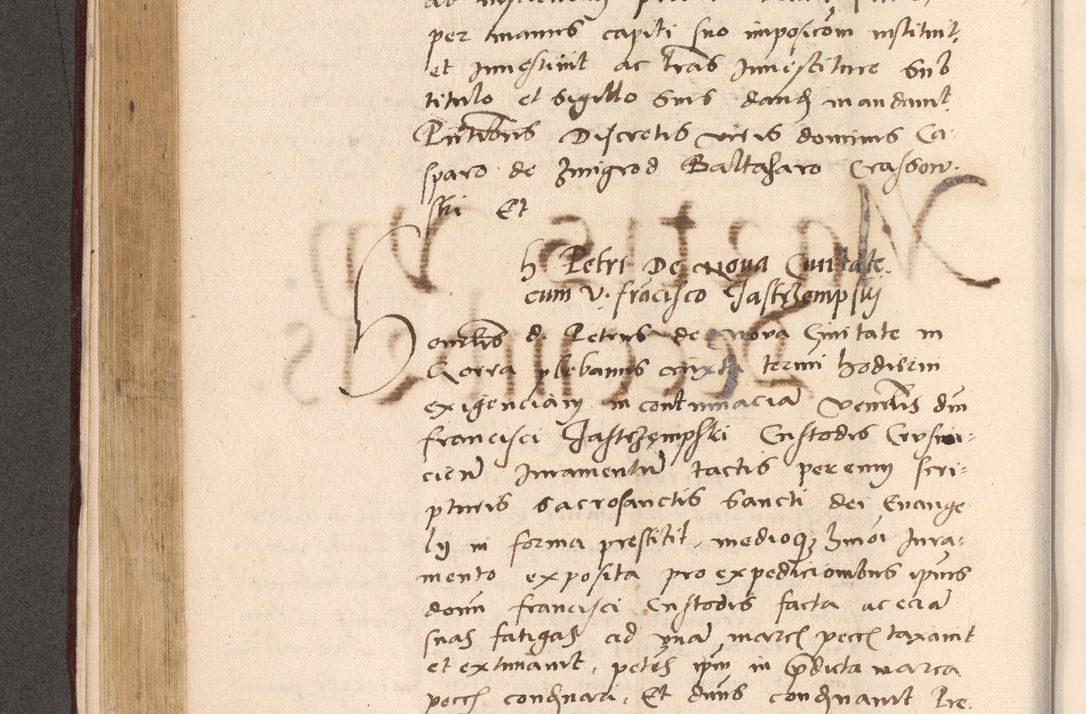 per manus capiti suo imposicom instituit
et Investivit ac lras Investiture sub
titulo et sigillo suis dand mandavit
Pntibus Discretis viris dominis Ca-
sparo de Zmigrod Baltasaro Crassow-
ski Et
h Petri De Nova Civitate
cum V. francisco Jastrzempskij
Honorlis d. Petrus de Nova Civitate in
Gorra plebanus iuxta termi hodierni
exigenciam in contumacia Venerlis dni
francisci Jastrzempski Custodis Crusvi-
cien Iuramentu tactis per eum scri-
pturis sacrosanctis Sancti dei Evange
lij in forma prestitit, medioq hmoi Iura-
mento exposita pro expedicionibus ipius
domi francisci Custodis facta ac ecia
suas fatigas ad una march pecch taxavit
et extimavit, petes ipm in pdicta marca
pecch condnari, Et dnus condnavit Pre